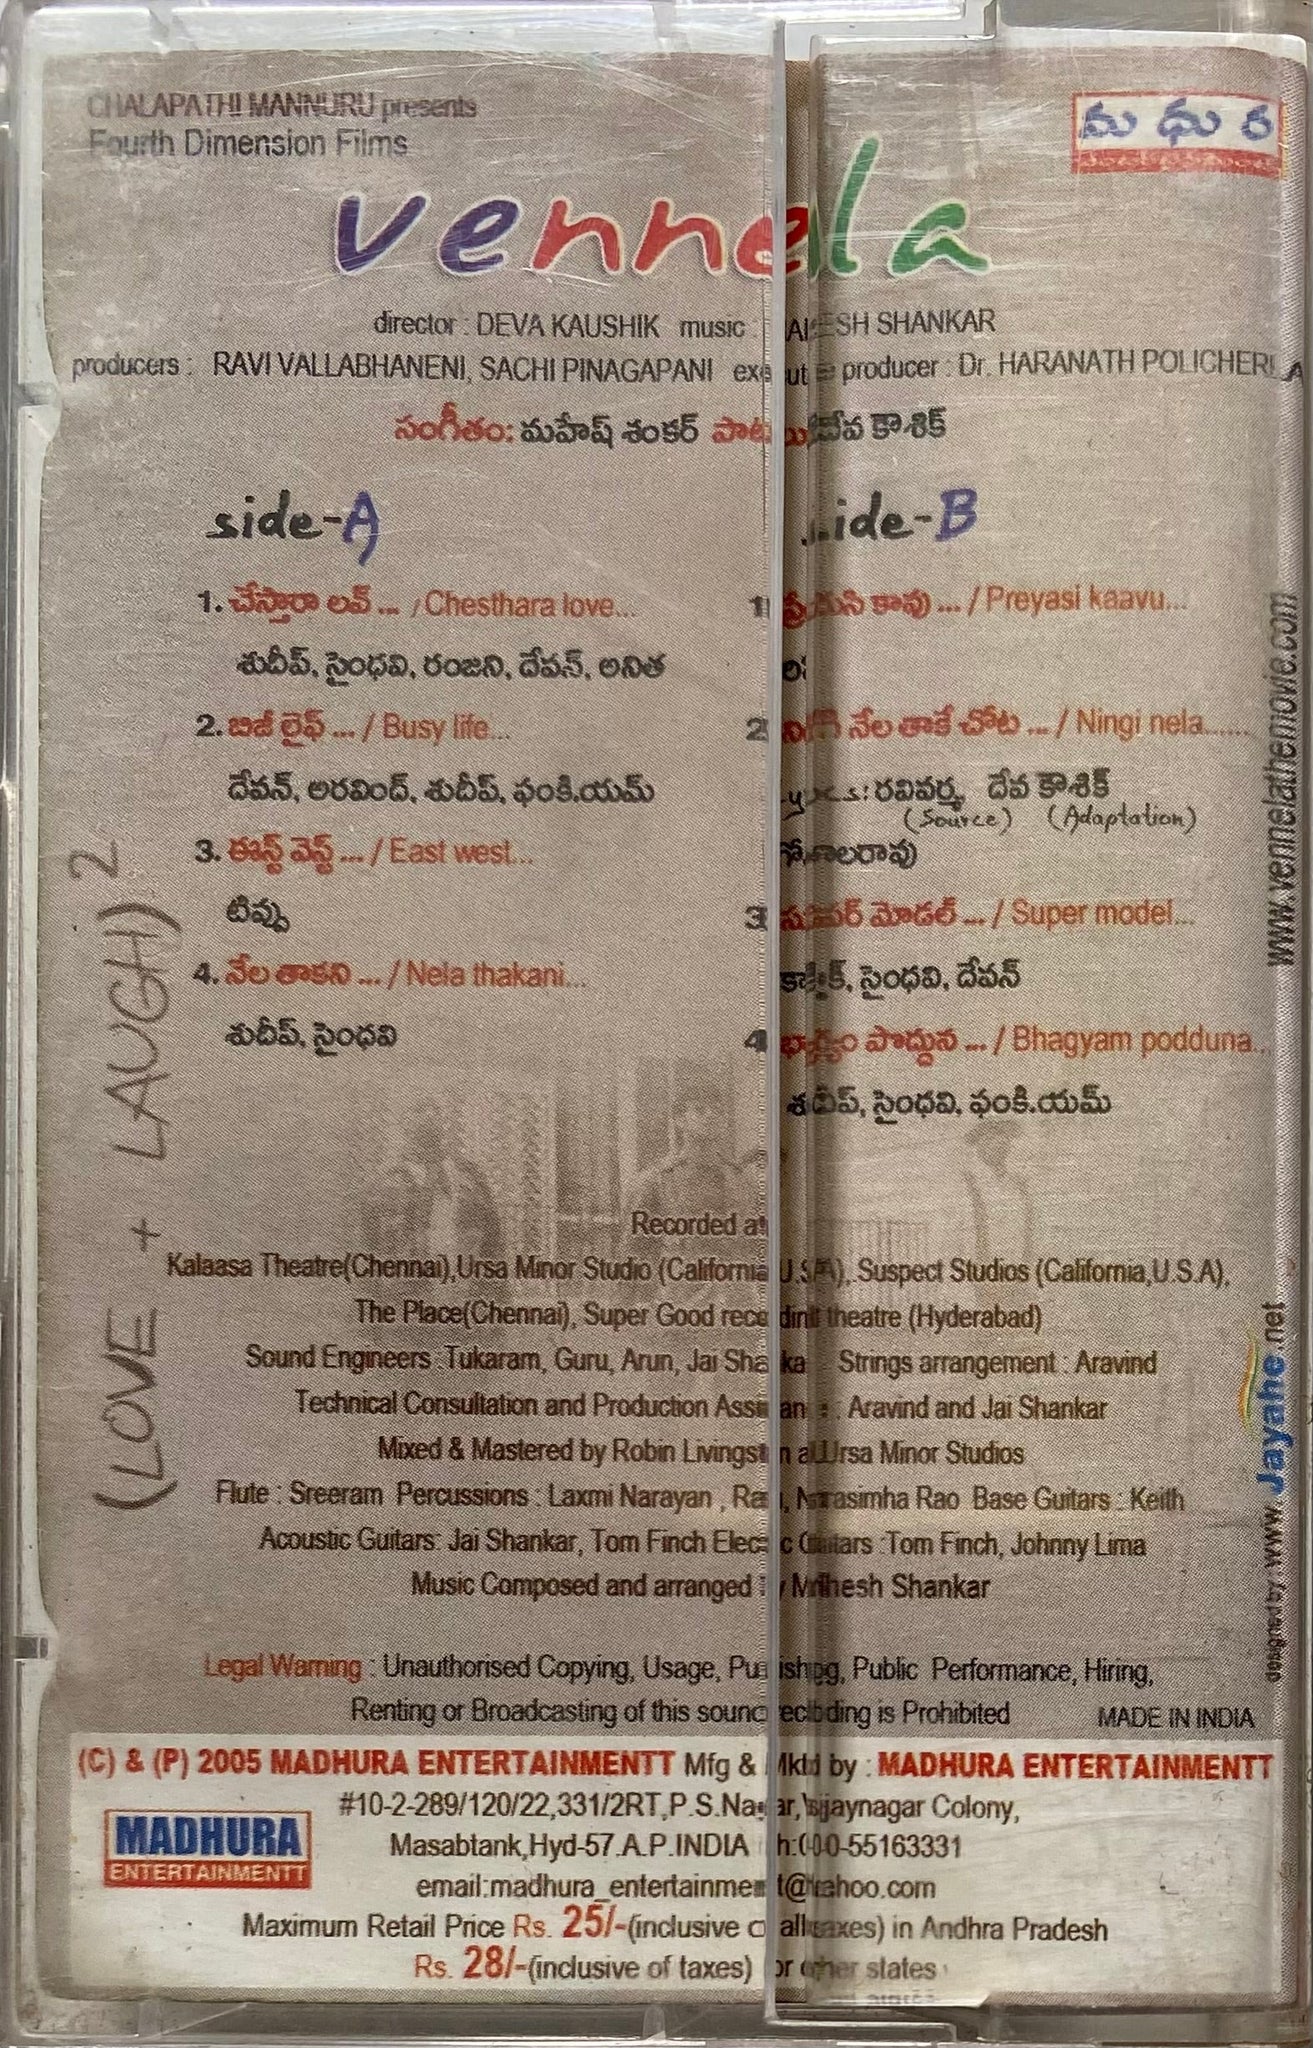 CHALAPATHI MANNURU presents
Fourth Dimension Films
మధుర
vennela
director : DEVA KAUSHIK music : MAHESH SHANKAR
producers : RAVI VALLABHANENI, SACHI PINAGAPANI executive producer : Dr. HARANATH POLICHERLA
సంగీతం: మహేష్ శంకర్ పాటలు: దేవ కౌశిక్
side-A
1. చేస్తారా లవ్ ... / Chesthara love...
శుదీప్, సైంధవి, రంజని, దేవన్, అనిత
2. బిజీ లైఫ్ ... / Busy life...
దేవన్, అరవింద్, శుదీప్, ఫంకి.యమ్
3. ఈస్ట్ వెస్ట్ ... / East west...
టిప్పు
4. నేల తాకని ... / Nela thakani...
శుదీప్, సైంధవి
side-B
1. ప్రేయసి కావు ... / Preyasi kaavu...
2. నింగి నేల తాకే చోట ... / Ningi nela......
Lyrics: రవివర్మ, దేవ కౌశిక్
(Source) (Adaptation)
గోపాలరావు
3. సూపర్ మోడల్ ... / Super model...
కార్తీక్, సైంధవి, దేవన్
4. భాగ్యం పొద్దున ... / Bhagyam podduna...
శుదీప్, సైంధవి, ఫంకి.యమ్
(LOVE + LAUGH) 2
Recorded at
Kalaasa Theatre(Chennai),Ursa Minor Studio (California,U.S.A), Suspect Studios (California,U.S.A),
The Place(Chennai), Super Good recording theatre (Hyderabad)
Sound Engineers :Tukaram, Guru, Arun, Jai Shankar Strings arrangement : Aravind
Technical Consultation and Production Assistance : Aravind and Jai Shankar
Mixed & Mastered by Robin Livingston at Ursa Minor Studios
Flute : Sreeram Percussions : Laxmi Narayan , Narasimha Rao Base Guitars : Keith
Acoustic Guitars: Jai Shankar, Tom Finch Electric Guitars :Tom Finch, Johnny Lima
Music Composed and arranged by Mahesh Shankar
Legal Warning : Unauthorised Copying, Usage, Publishing, Public Performance, Hiring,
Renting or Broadcasting of this sound recording is Prohibited MADE IN INDIA
www.vennelathemovie.com
designed by : www.Jayahe.net
(C) & (P) 2005 MADHURA ENTERTAINMENTT Mfg & Mktd by : MADHURA ENTERTAINMENTT
MADHURA
ENTERTAINMENTT
#10-2-289/120/22,331/2RT,P.S.Nagar,Vijaynagar Colony,
Masabtank,Hyd-57.A.P.INDIA Ph:040-55163331
email:madhura_entertainmentt@yahoo.com
Maximum Retail Price Rs. 25/-(inclusive of all taxes) in Andhra Pradesh
Rs. 28/-(inclusive of taxes) for other states